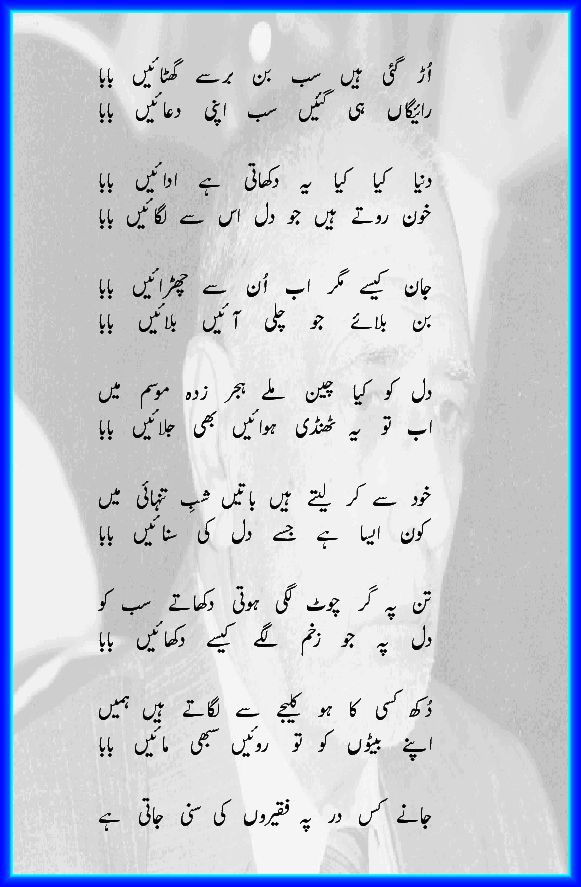 اُڑ گئی ہیں سب بن برسے گھٹائیں بابا
رائیگاں ہی گئیں سب اپنی دعائیں بابا
دنیا کیا کیا یہ دکھاتی ہے ادائیں بابا
خون روتے ہیں جو دل اس سے لگائیں بابا
جان کیسے مگر اب اُن سے چھڑائیں بابا
بن بلائے جو چلی آئیں بلائیں بابا
دل کو کیا چین ملے ہجر زدہ موسم میں
اب تو یہ ٹھنڈی ہوائیں بھی جلائیں بابا
خود سے کر لیتے ہیں باتیں شبِ تنہائی میں
کون ایسا ہے جسے دل کی سنائیں بابا
تن پہ گر چوٹ لگی ہوتی دکھاتے سب کو
دل پہ جو زخم لگے کیسے دکھائیں بابا
دُکھ کسی کا ہو کلیجے سے لگاتے ہیں ہمیں
اپنے بیٹوں کو تو روئیں سبھی مائیں بابا
جانے کس در پہ فقیروں کی سنی جاتی ہے